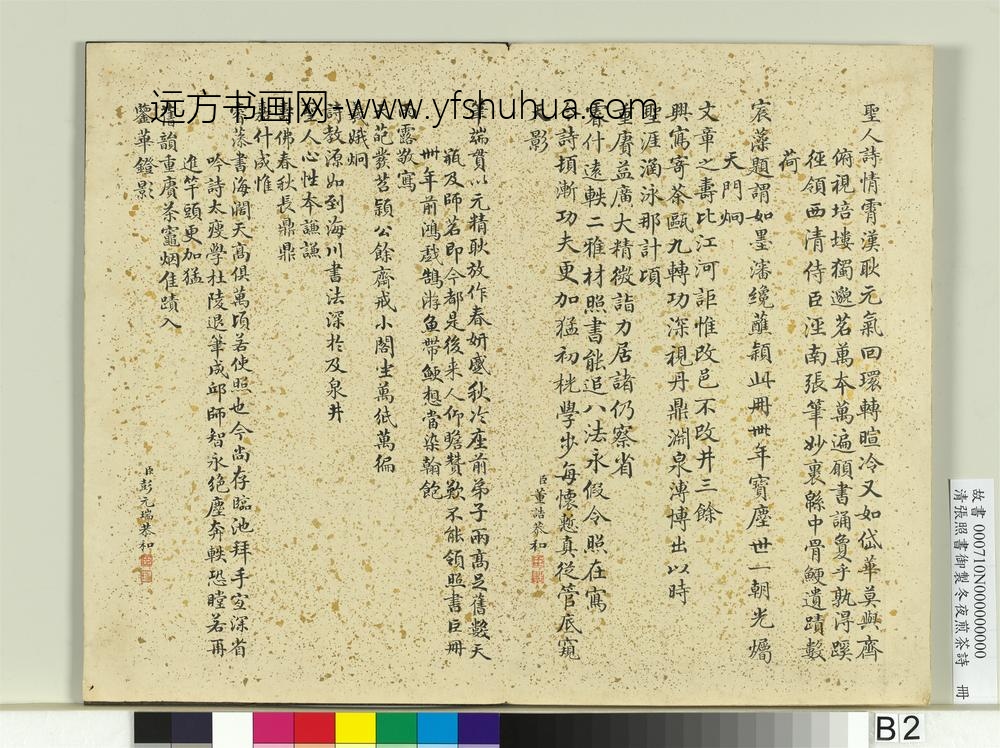 聖人詩情霄漢耿元氣回環轉暄冷又如岱華莫與齊
俯視培塿獨邈茗萬本萬遍願書誦夐乎孰得蹊
徑領西清侍臣涇南張筆妙裹緜中骨鯁遺蹟數
荷
宸藻題謂如墨瀋纔蘸穎此冊卅年寶塵世一朝光燭
天門炯
文章之壽比江河詎惟改邑不改井三餘
興寓寄茶甌九轉功深視丹鼎淵泉溥博出以時
聖涯涵泳那計頃
重賡益廣大精微詣力居諸仍察省
什遠軼二雅材照書能追八法永假令照在寫
詩頃漸功夫更加猛初桄學步每懷慙真從管底窺
影
臣董誥恭和
筆端貫以元精耿放作春妍盛秋冷座前弟子兩高足舊數天
瓶及師茗即今都是後来人仰瞻贊歎不能領照書巨冊
卅年前鴻戲鵠游魚帶鯁想當染翰飽
露敬寫
葩發苕穎公餘齋戒小閣坐萬紙萬徧
娥炯
詩教源如到海川書法深於及泉井
聖人心性本謙謙
佛春秋長鼎鼎
什成惟
藻書海闊天高俱萬頃若使照也今尚存臨池拜手宜深省
吟詩太瘦學杜陵退筆成邱師智永絶塵奔軼恐瞠若再
進竿頭更加猛
韻重賡茶竈烟隹蹟入
華鐙影
臣彭元瑞恭和
远方书画网-www.yfshuhua.com
故書 000710N000000000
清張照書御製冬夜煎茶詩 冊
B2